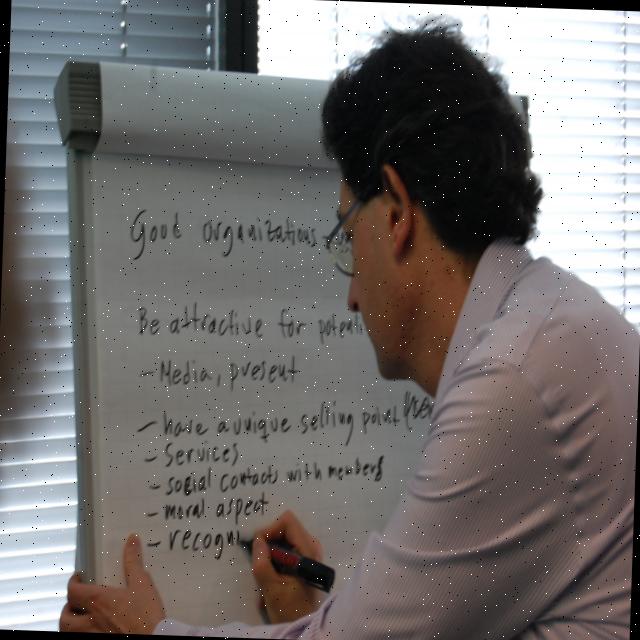 Good organizations
Be attractive for potenti
- Media, present
- have a unique selling point
- Services
- social contacts with members
- moral aspect
- recogn